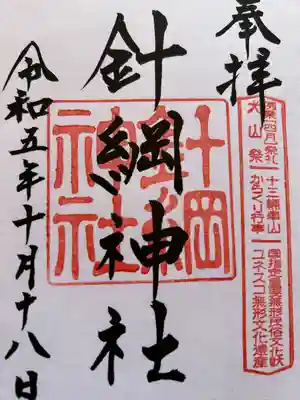 奉拝
針綱神社
令和五年十月十八日
針綱
神社
犬山祭
十三輌車山
からくり行事
国指定重要無形民俗文化財
ユネスコ無形文化遺産